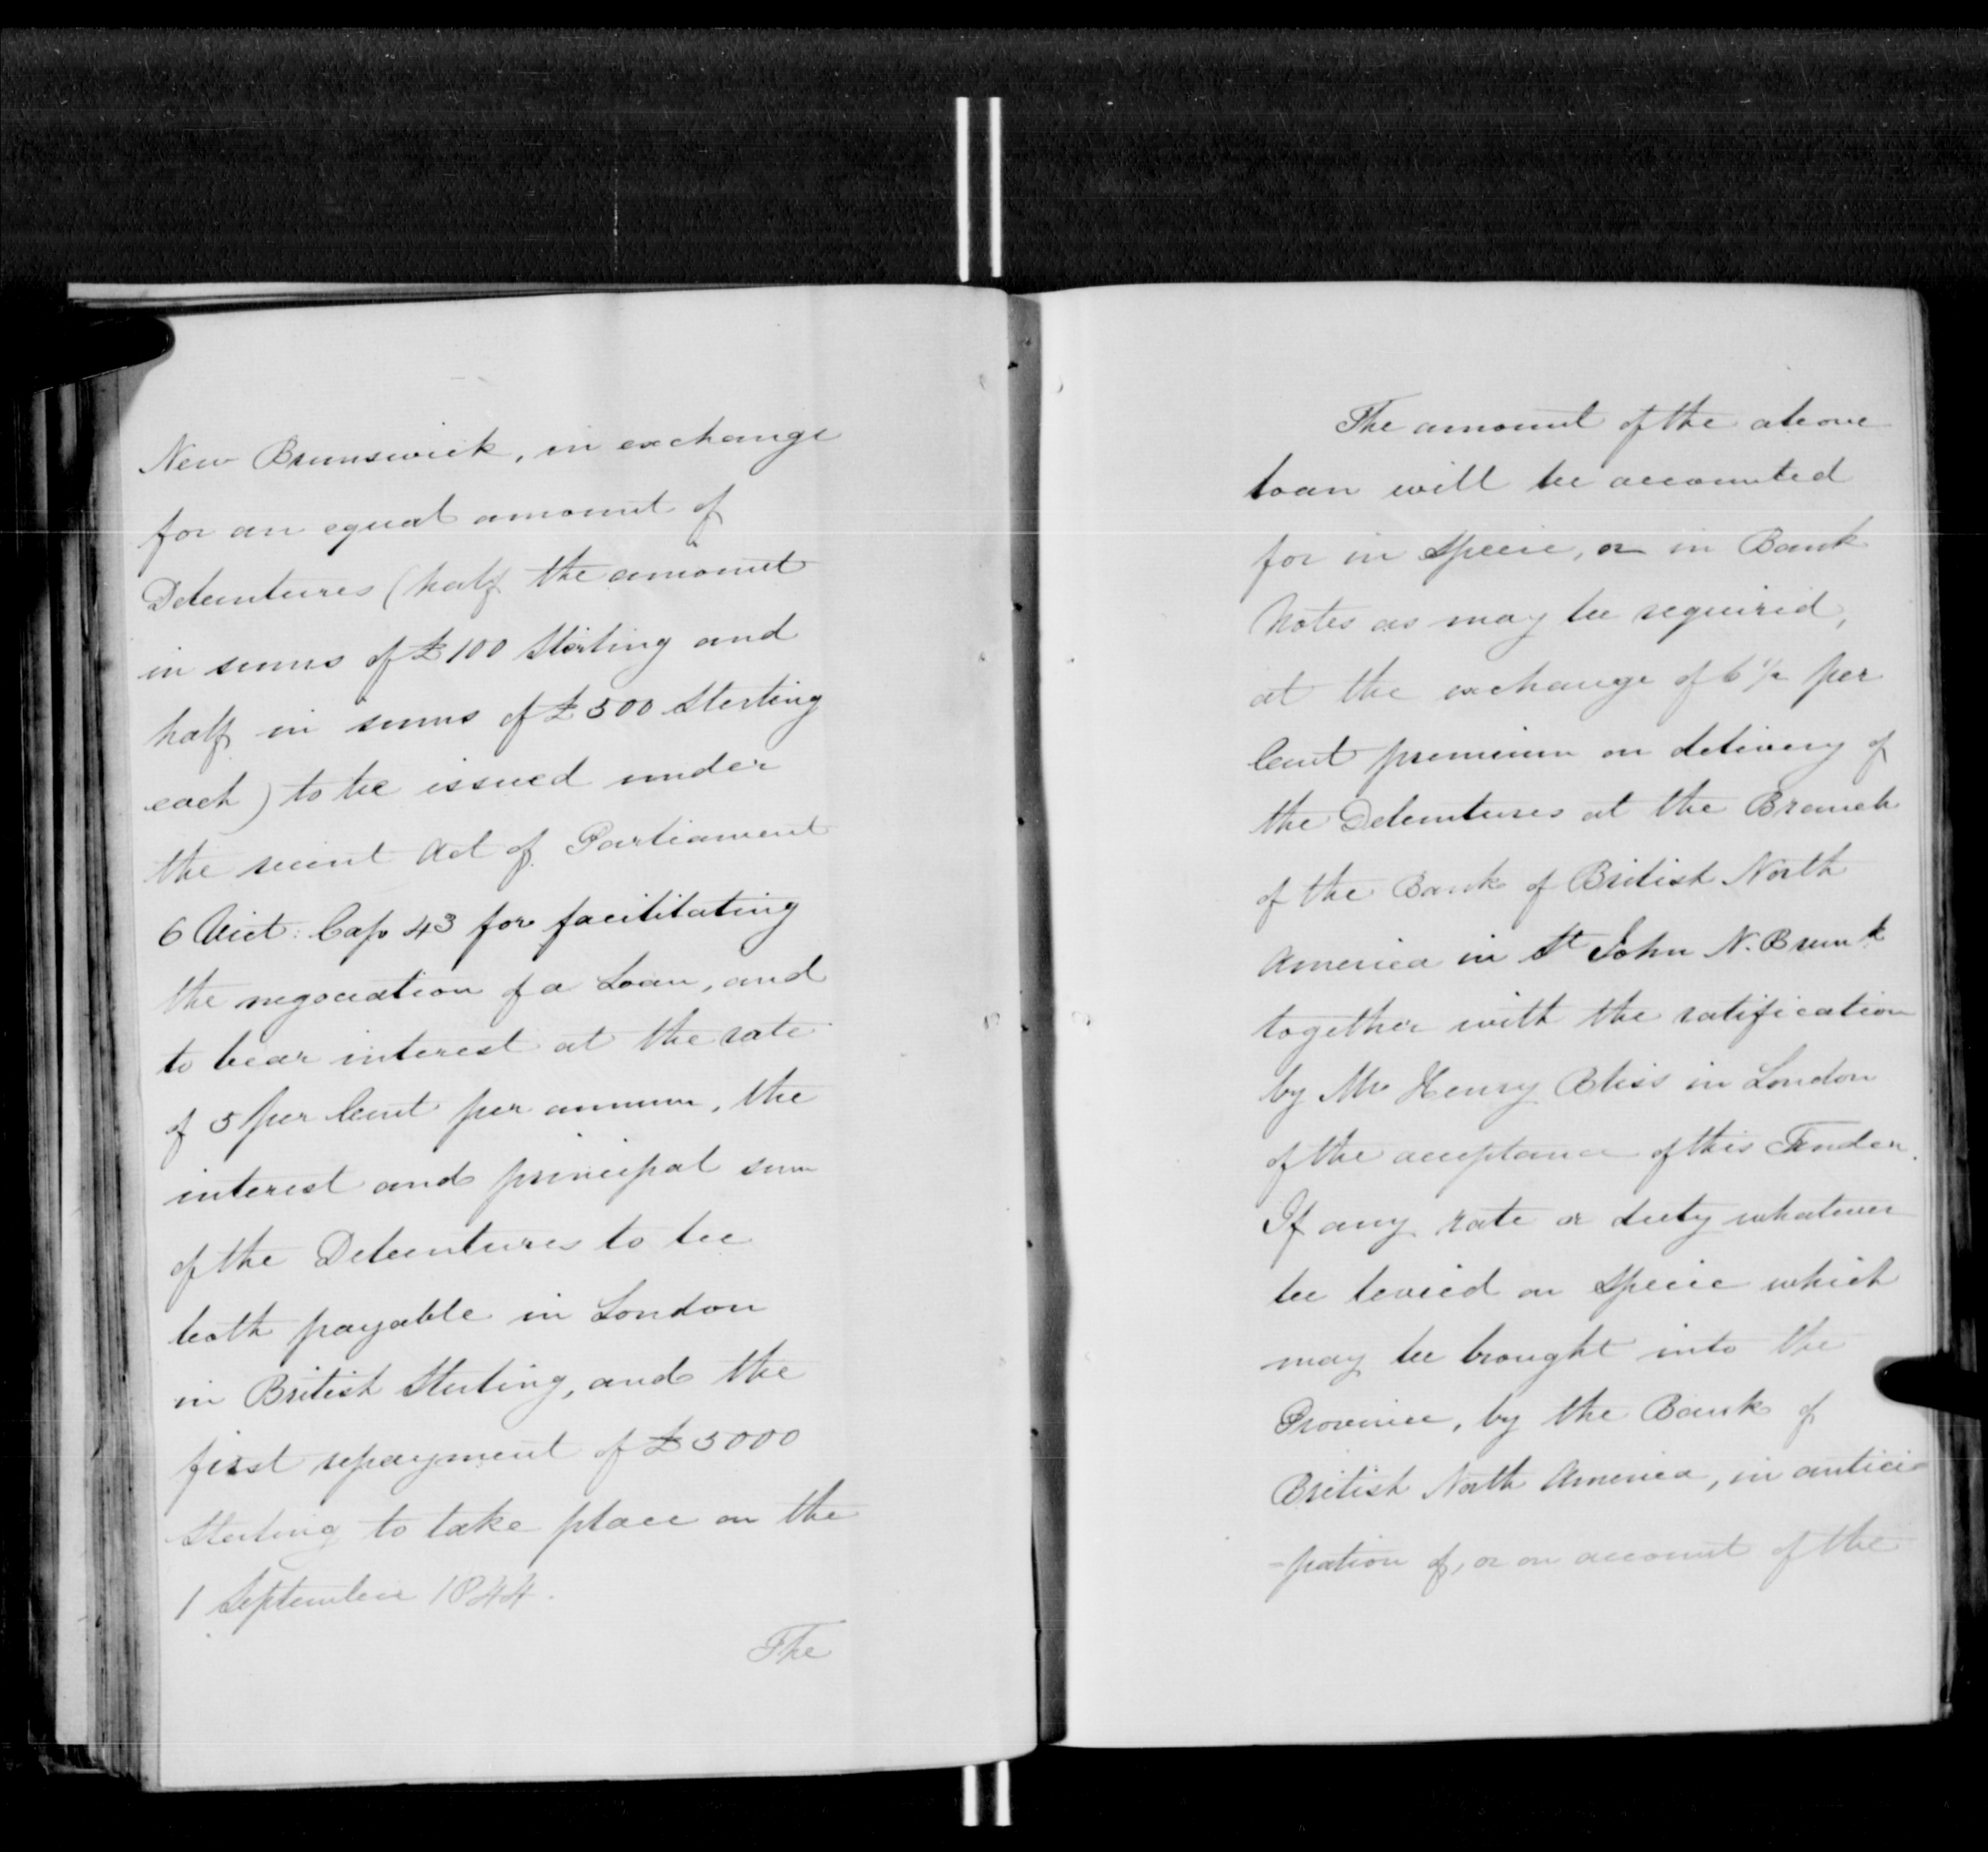 New Brunswick, in exchange
for an equal amount of
Debentures (half the amount
in sums of £100 Sterling and
half in sums of £500 Sterling
each) to be issued under
the recent Act of Parliament
6 Vict: Cap 43 for facilitating
the negociation of a Loan, and
to bear interest at the rate
of 5 per Cent per annum, the
interest and principal sum
of the Debentures to be
both payable in London
in British Sterling, and the
first repayment of £5000
Sterling to take place on the
1 September 1844.
The
The amount of the above
loan will be accounted
for in Specie, or in Bank
Notes as may be required,
at the exchange of 6 1/2 per
Cent premium on delivery of
the Debentures at the Branch
of the Bank of British North
America in St John N. Brunk
together with the ratification
by Mr Henry Bliss in London
of the acceptance of this Tender.
If any rate or duty whatever
be levied on Specie which
may be brought into the
Province, by the Bank of
British North America, in antici-
-pation of, or on account of the